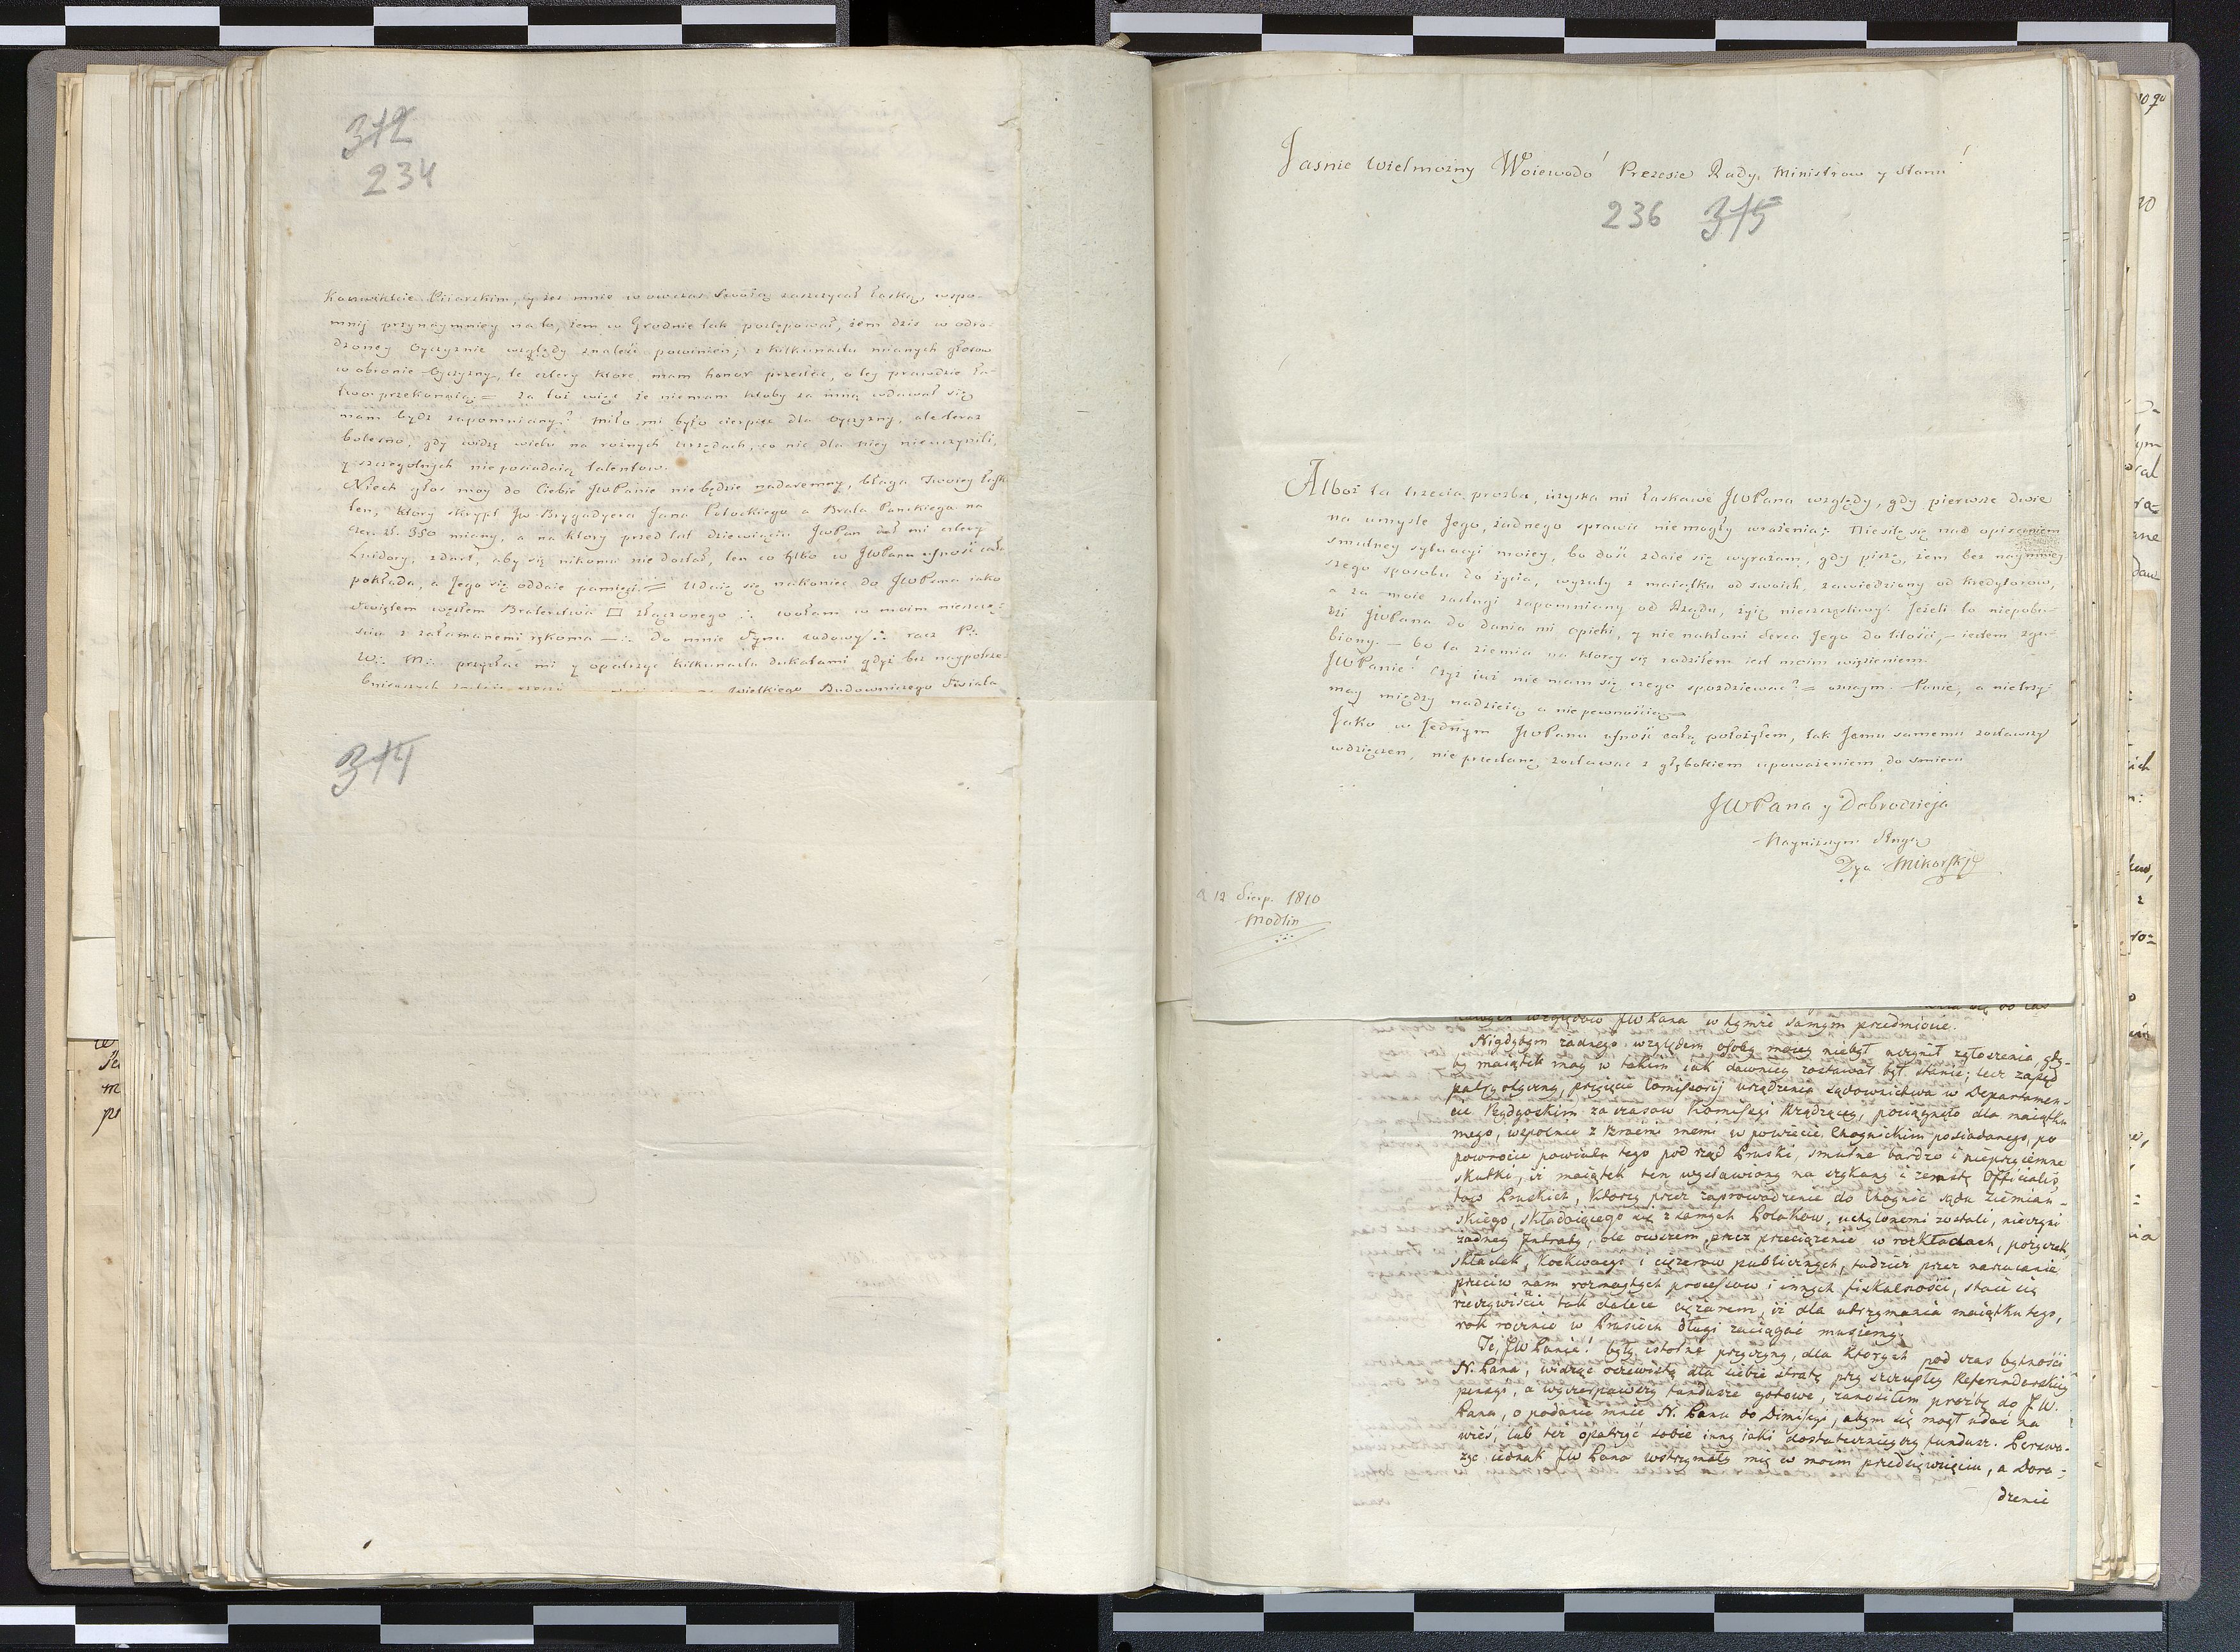 312
234
Konwikcie Piiarskim, y żes mnie wowczas Swoią zaszczycał łaską, wspo-
mnij przynaymniey na to, żem w Grodnie tak postępował, żem dzis w odro-
dzoney Oyczyznie względy znaleść powinien; z kilkunastu mianych głosow
w obronie Oyczyzny, te cztery ktore mam honor przesłać, o tey prawdzie ła-
two przekonaią = za toż więc że niemam ktoby za mną wdawał się
mam bydz zapomniany? miło mi było cierpieć dla Oyczyzny, ale teraz
bolesno, gdy widzę wielu na rożnych Urzędach, co nic dla Niey nieuczynili,
y szczegolnych nieposiadaią talentow.
Niech głos moy do Ciebie JWPanie niebędzie nadaremny, błaga Twoiey łaski
ten, ktory skrypt Jw Brygadyera Jana Potockiego a Brata Panskiego na
Czer. zł. 350 miany, a na ktory przed lat dziewięciu JWPan dał mi cztery
Luidory, zdarł, aby się nikomu nie dostał, ten co tylko w JWPanu ufność całą
pokłada, a Jego się oddaie pamięci = Udaię się nakoniec do JWPana iako
Swiętem węzłem Braterstwa □ złączonego ∴ wołam w moim nieszczę-
sciu z załamanemi rękoma —∴ Do mnie Syna wdowy ∴ racz P∴
W∴ M∴ przysłać mi y opatrzyc kilkunastu dukatami gdyż bez naypotrze-
Wielkiego Budowniczego Swiata
314
Jasnie Wielmożny Woiewodo! Prezesie Rady, Ministrow y Stanu!
236 315
Alboż ta trzecia prozba, uzyska mi łaskawe JWPana względy, gdy pierwsze dwie
na umysle Jego, żadnego sprawić niemogły wrażenia; Niesilę się nad opisaniem
smutney sytuacyi moiey, bo dość zdaie się wyrażam, gdy piszę, żem bez naymniey
szego sposobu do życia, wyzuty z maiątku od swoich, zawiedziony od kredytorow,
a za moie zasługi zapomniany od Rządu, żyię nieszczęsliwy: Jeżeli to niepobu-
dzi JWPana do dania mi opieki, y nie nakłoni serca Jego do litości, — iestem zgu-
biony — bo ta ziemia na ktorey się rodziłem iest moim więzieniem.
JWPanie! Czyż iuż nie mam się czego spodziewac? = uczyn Panie, a nietrzy-
may między nadzieią a niepewnością —
Jako w Jednym JWPanu ufność całą położyłem, tak Jemu samemu zostawszy
wdzięczen, nie przestanę zostawac z głębokiem upoważeniem do smierci
JWPana y Dobrodzieja
Nayniższym Sługą
Dya Mikorski
12 Sierp. 1810
Modlin
względow JWPana w tymże samym przedmiocie.
Nigdybym żadnego względem osoby moiey niebył uczynił zgłoszenia, gdy-
by maiątek moy w takim iak dawniey zostawał był stanie; lecz zapęd
patryotyczny, przyięcie Comissorij urządzenia sądownictwa w Departamen-
cie Bydgoskim za czasow Komissyi Rządzącey, pociągnęło dla maiątku
mego, wspolnie z Bracmi memi w powiecie Choynickim posiadanego, po
powrocie powiatu tego pod rząd Pruski, smutne bardzo i nieprzyiemne
skutki, iż maiątek ten wystawiony na szykany i zemstę Officialis-
tow Pruskich, ktorzy przez zaprowadzenie do Choynic sądu Ziemian-
skiego, składaiącego się z samych Polakow, uchylonemi zostali, nieczyni
żadney Intraty, ale owszem przez przeciążenie w rozkładach, pożyczek,
składek, i ciężarow publicznych, tudzież przez narzucanie
przeciw nam rozmaitych processow i innych fiskalności, staie się
rzeczywiście tak dalece ciężarem, iż dla utrzymania maiątku tego,
rok rocznie w Prusiech długi zaciągać musiemy.
Te, JW Panie! były istotne przyczyny, dla ktorych pod czas bytności
N. Pana, widząc oczewistą dla siebie stratę przy szczupłey Referendarskiey
pensyi, a wyczerpawszy fundusze gotowe, zanosiłem prozbę do JW.
Pana, o podanie mnie N. Panu do Dimissyi, abym się mogł udać na
wieś, lub też opatrzyć sobie inny iaki dostatecznieyszy fundusz. Perswa-
zye iednak JW Pana wstrzymały mię w moim przedsięwzięciu, a Dora-
dzenie